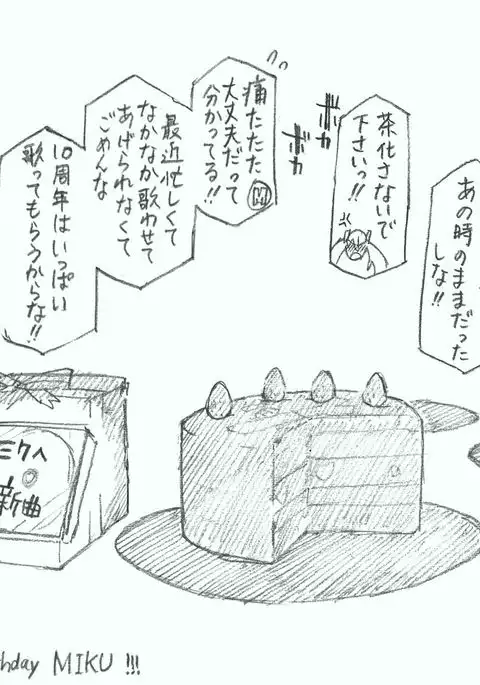 あの時の
ままだった
しな!!
茶化さないで
下さいっ!!
ポカ
ポカ
痛たたた
大丈夫だって
分かってる!!
M
最近忙しくて
なかなか歌わせて
あげられなくて
ごめんな
10周年はいっぱい
歌ってもらうからな!!
ミクへ
新曲
hday MIKU !!!